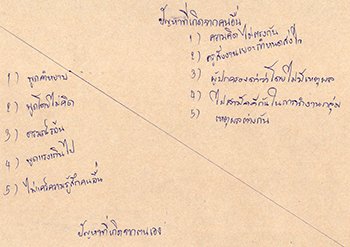 ปัญหาที่เกิดจากคนอื่น
1) ความคิดไม่ตรงกัน
2) ครูสั่งงานเยอะกำหนดส่งไว
3) ผู้ปกครองด่าว่าโดยไม่มีเหตุผล
4) ไม่สามัคคีกันในการทำงานกลุ่ม
5) เหตุผลต่างกัน
1) พูดคำหยาบ
2) พูดโดยไม่คิด
3) อารมณ์ร้อน
4) พูดแรงเกินไป
5) ไม่แคร์ความรู้สึกคนอื่น
ปัญหาที่เกิดจากตนเอง